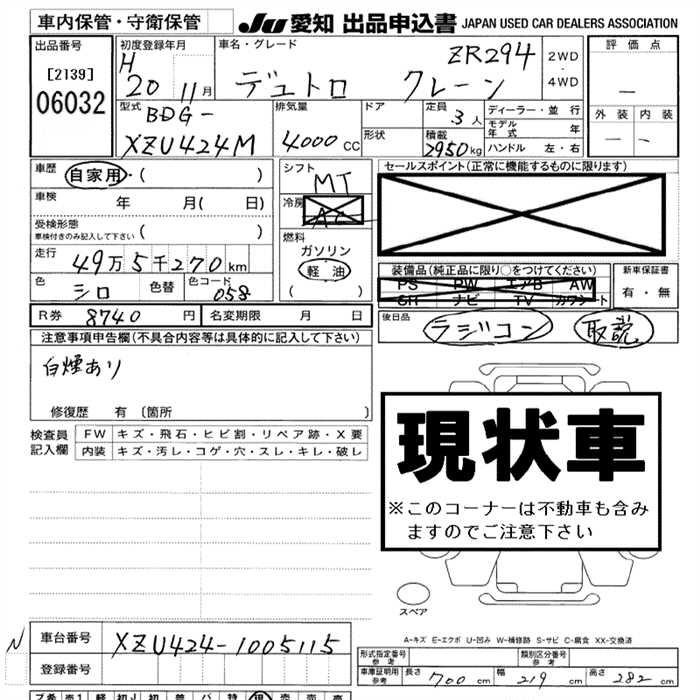 車内保管・守衛保管 JU 愛知 出品申込書 JAPAN USED CAR DEALERS ASSOCIATION
出品番号 初度登録年月 車名・グレード ZR294 2WD・4WD 評価点
[2139] H 20 11月 デュトロ クレーン —
06032
型式 BDG- 排気量 ドア 定員 3人 ディーラー・並行 外装 内装
XZU424M 4000CC 形状 積載 2950kg モデル年式 年 — —
ハンドル 左・右
車歴 自家用・( ) シフト MT セールスポイント(正常に機能するものに限ります)
車検 年 月( 日) 冷房 AC
受検形態 ( )
車検付きのみ記入して下さい
燃料 ガソリン
走行 49万5千270km 軽油
( )
装備品(純正品に限り○をつけてください) 新車保証書
PS PW エアB AW 有・無
SR ナビ TV カワシート
色 シロ 色替 色コード 058
R券 8740円 名変期限 月 日
後日品 ラジコン 取説
注意事項申告欄(不具合内容等は具体的に記入して下さい)
白煙あり
修復歴 有〔箇所 〕
検査員記入欄 FW キズ・飛石・ヒビ割・リペア跡・X要
内装 キズ・汚レ・コゲ・穴・スレ・キレ・破レ
現状車
※このコーナーは不動車も含み
ますのでご注意下さい
スペア
A-キズ E-エクボ U-凹み W-補修跡 S-サビ C-腐食 XX-交換済
N 車台番号 XZU424-1005115
登録番号
形式指定番号 参考 類別区分番号 参考
車庫証明用 参考 長さ 700cm 幅 219cm 高さ 282cm